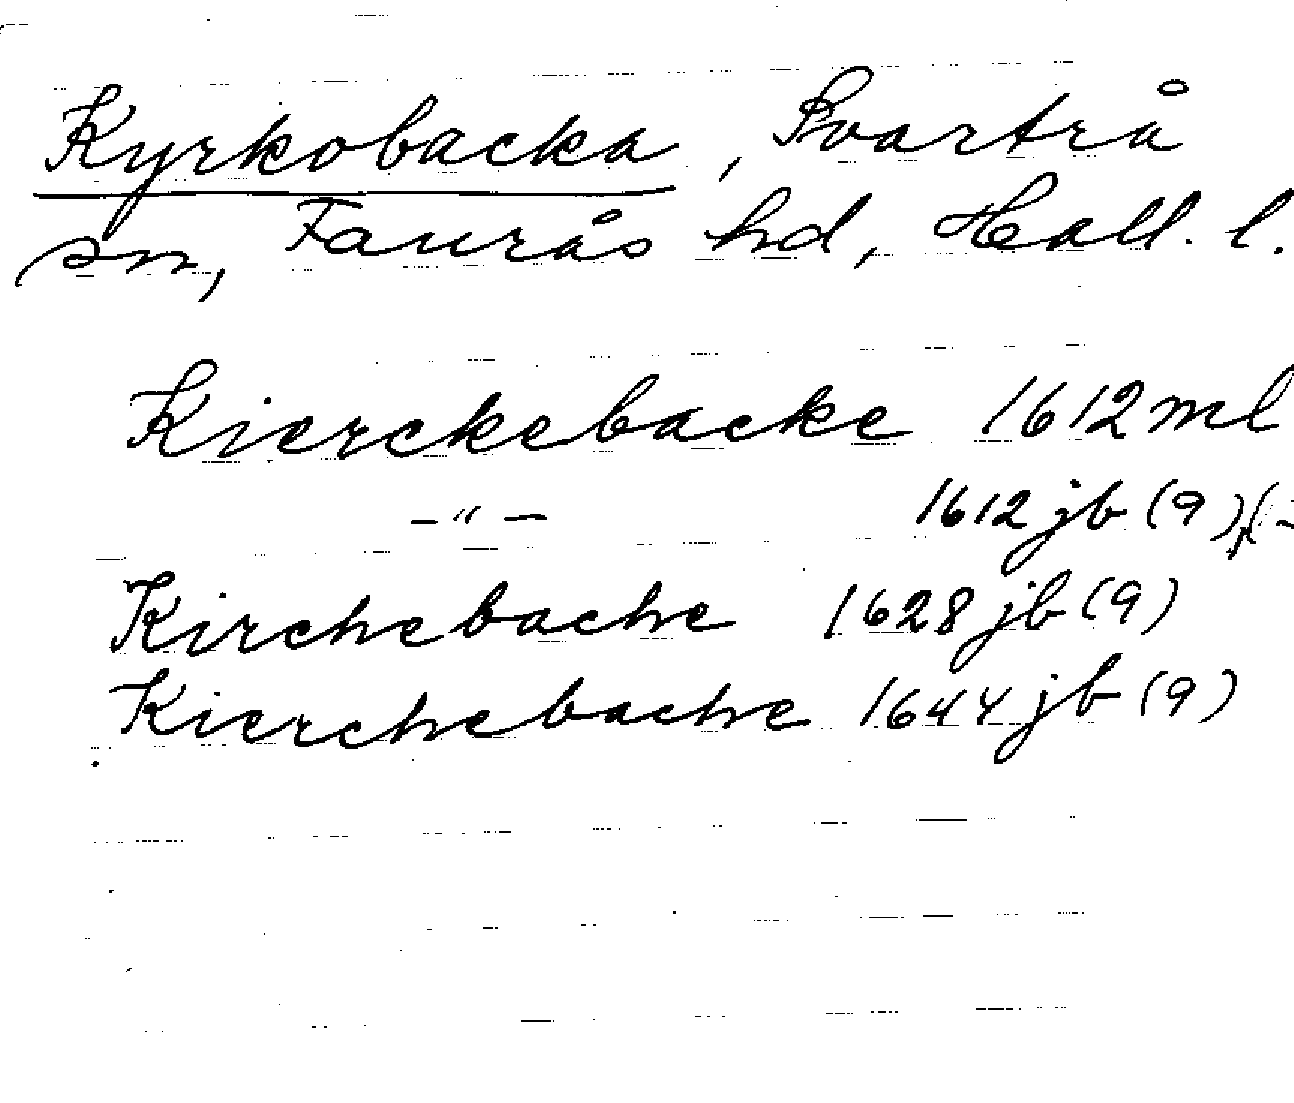 Kyrkobacka, Svartrå
sn, Faurås hd, Hall. l.
Kierckebacke 1612 ml
-"- 1612 jb (9),
Kirchebache 1628 jb (9)
Kierchebache 1644 jb (9)